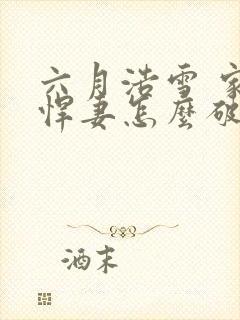 六月浩雪 家
悍妻怎麼破
酒末